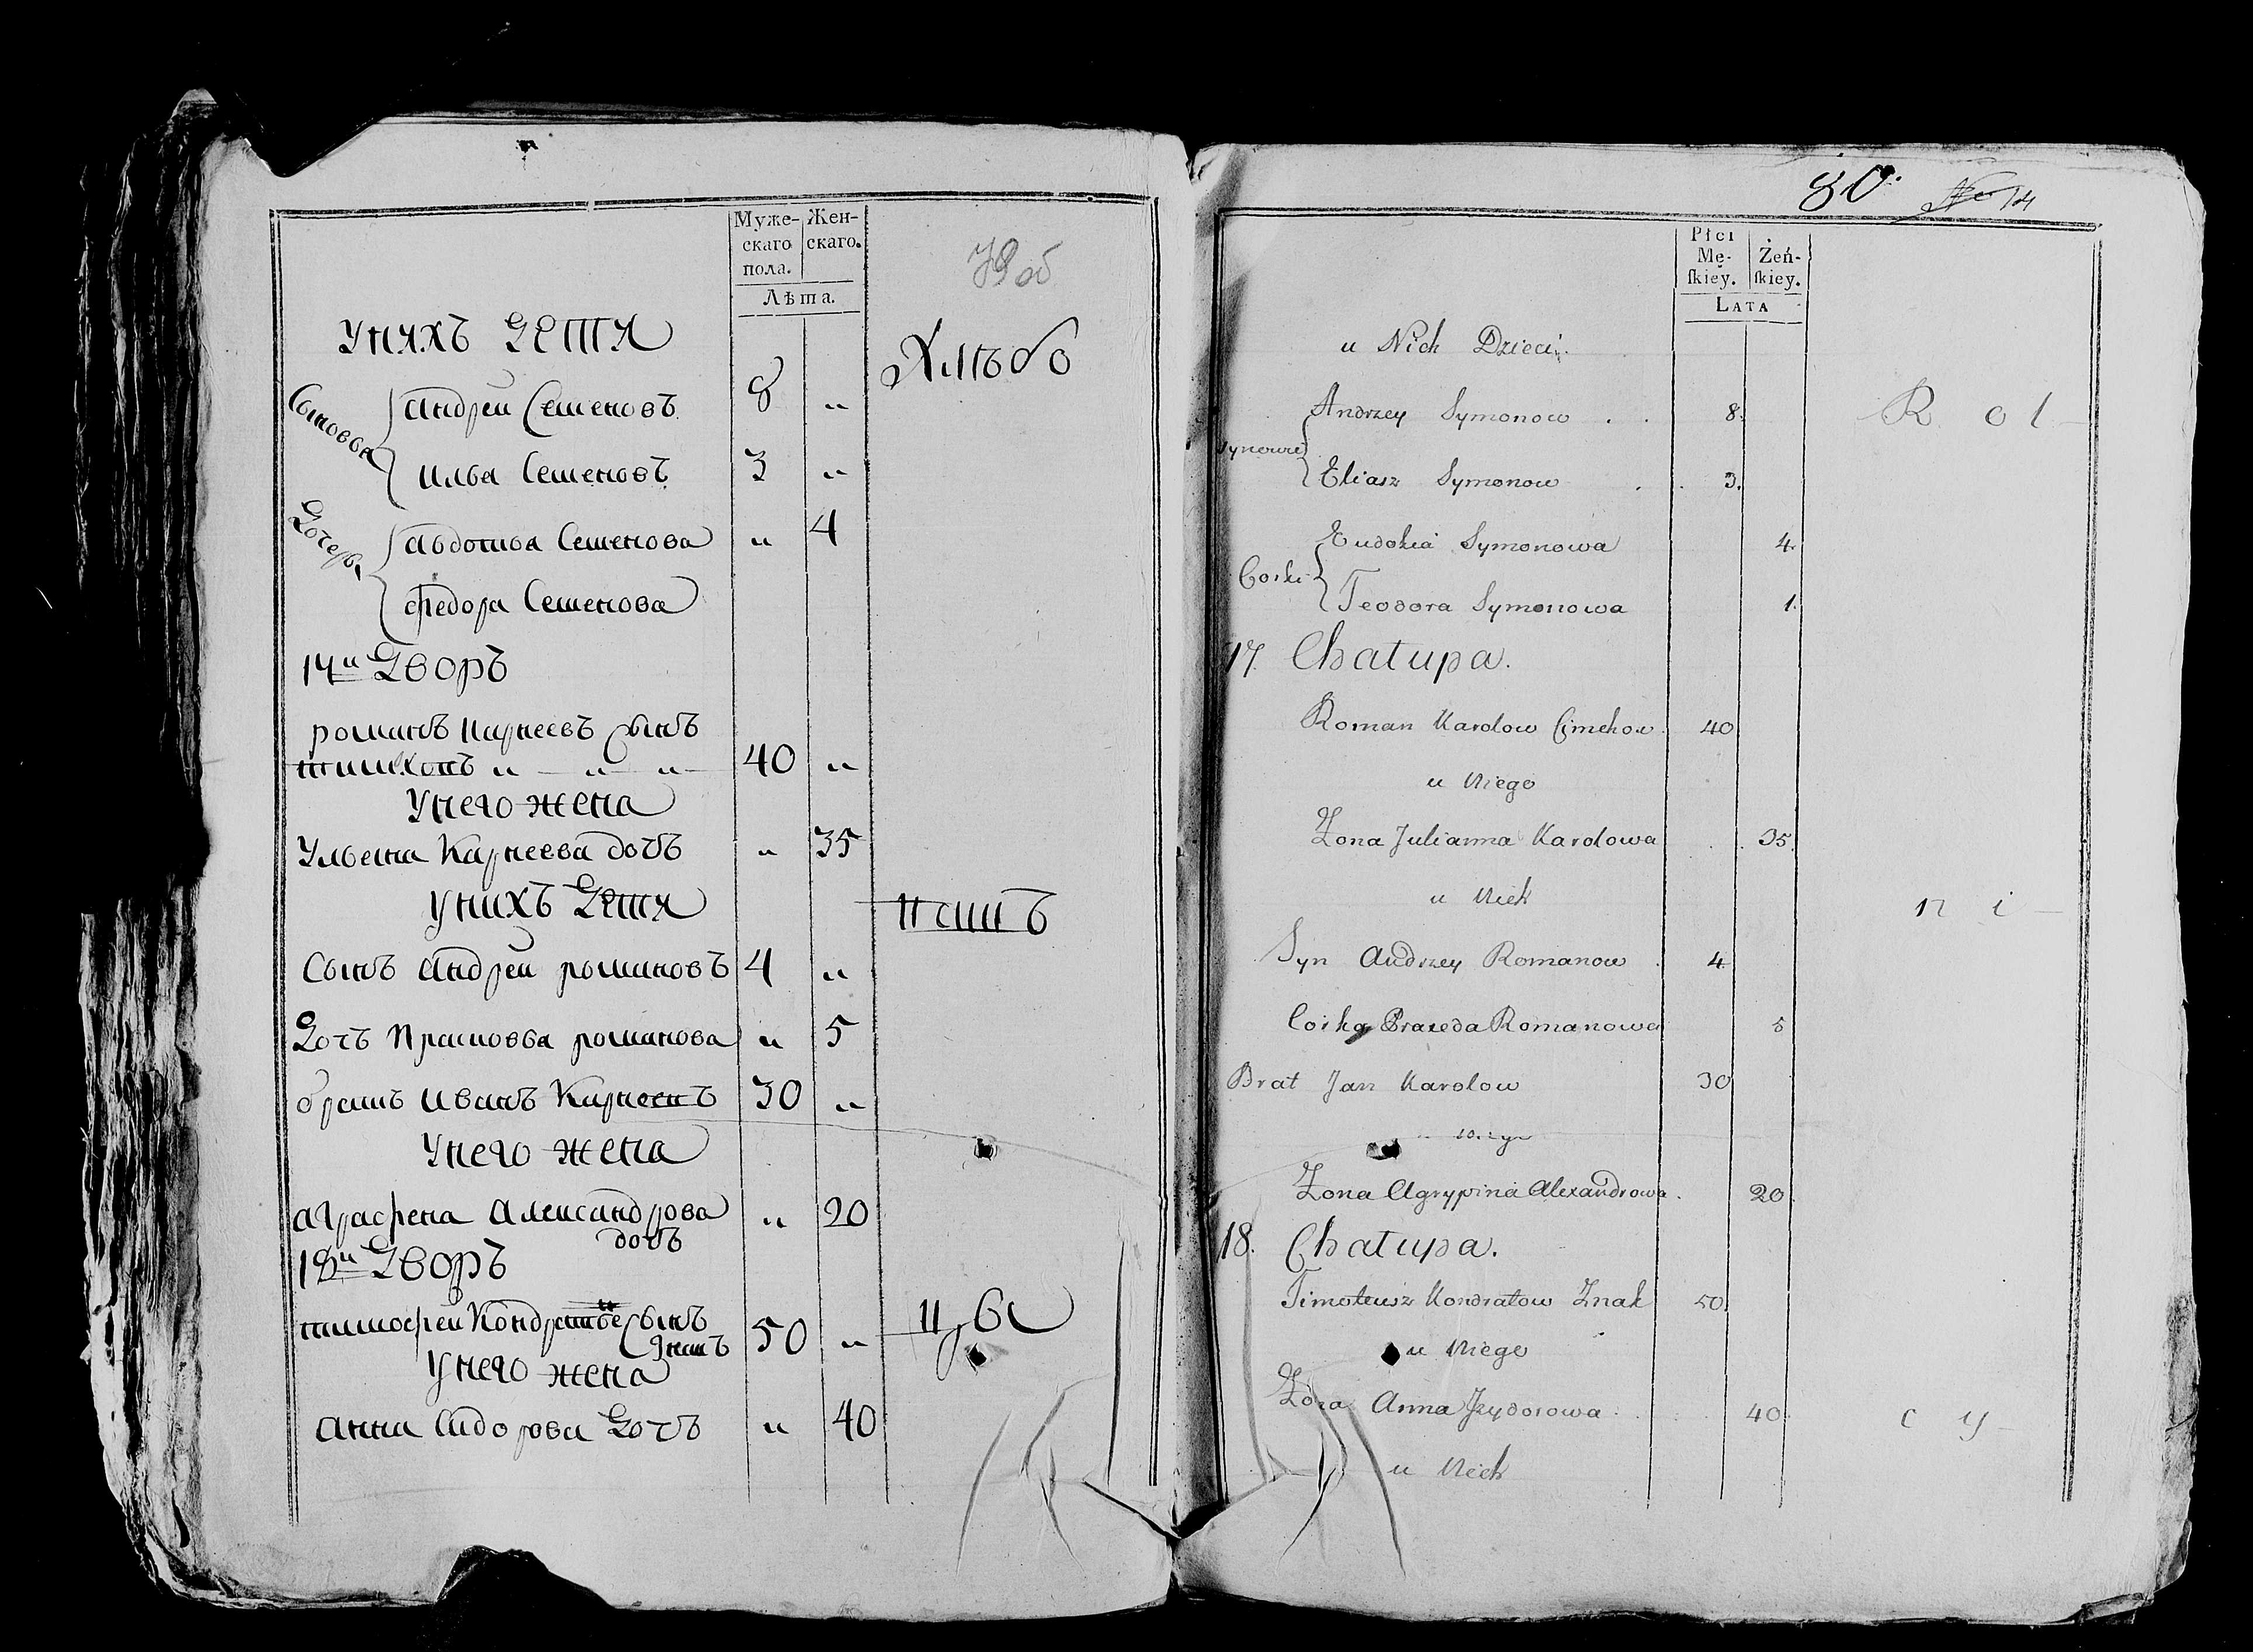 Муже-
скаго
пола.
Жен-
скаго.
Лѣта.
79 об
Унихъ Дети
Хлѣбо
Сыновья
Андреи Семеновъ 8 "
Илья Семеновъ 3 "
Дочери
Авдотья Семенова " 4
Федора Семенова
17й Дворъ
романъ Карнеевъ Сынъ
тимхонъ " — " — " — 40 "
Унего жена
Ульена Карнеева дочь " 35
Унихъ Дети
пашъ
Сынъ Андреи романовъ 4 "
Дочь Прасковья романова " 5
братъ Иванъ Карнеевъ 30 "
Унего жена
аграфена Александрова " 20
дочь
18й Дворъ
тимофеи Кондратьевъ Сынъ
Знакъ 50 "
цы
Унего жена
Анна Сидорова Дочь " 40
80. No 14
Płci
Mę-
skiey.
Żeń-
skiey.
LATA
u Nich Dzieci.
Synowie
Andrzey Symonow . . 8.
R o l -
Eliasz Symonow . . 3.
Corki
Eudokia Symonowa 4.
Teodora Symonowa 1.
17 Chałupa.
Roman Karolow Cimchow. 40
u Niego
Zona Julianna Karolowa . . 35.
u Nich
n i -
Syn Andrzey Romanow . 4
Corka Praxeda Romanowa 5
Brat Jan Karolow 30
Zona Agrypina Alexandrowa . 20.
18. Chałupa.
Timoteusz Kondratow Znak 50.
u Niego
Zona Anna Jzydorowa . . . 40.
c y -
u Nich